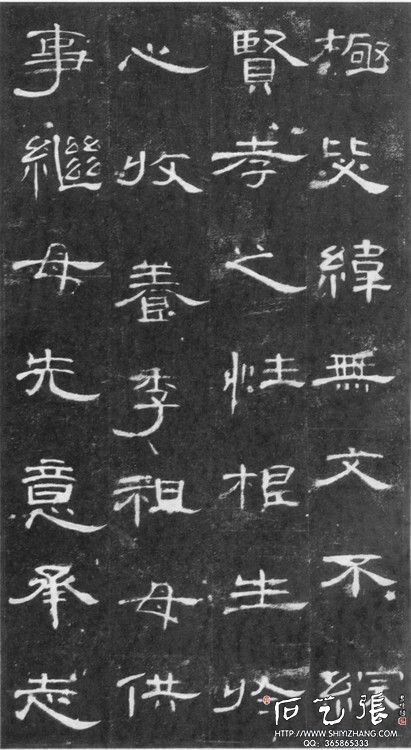 極毖緯無文不綜
賢孝之性根生於
心收養季祖母供
事繼母先意承志
石艺張
HTTP://WWW.SHIYIZHANG.COM
QQ: 365865333